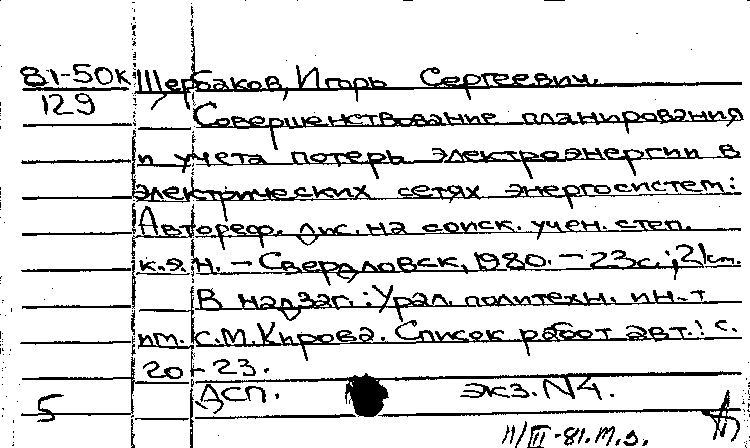 81-50к Щербаков, Игорь Сергеевич.
129
Совершенствование планирования
и учета потерь электроэнергии в
электрических сетях энергосистем:
Автореф. дис. на соиск. учен. степ.
к.э.н. – Свердловск, 1980. – 23с.; 21 см.
В надзаг.: Урал. политехн. ин-т
им. С.М. Кирова. Список работ авт.: с.
20-23.
ДСП. экз. N4.
5
11/III-81.